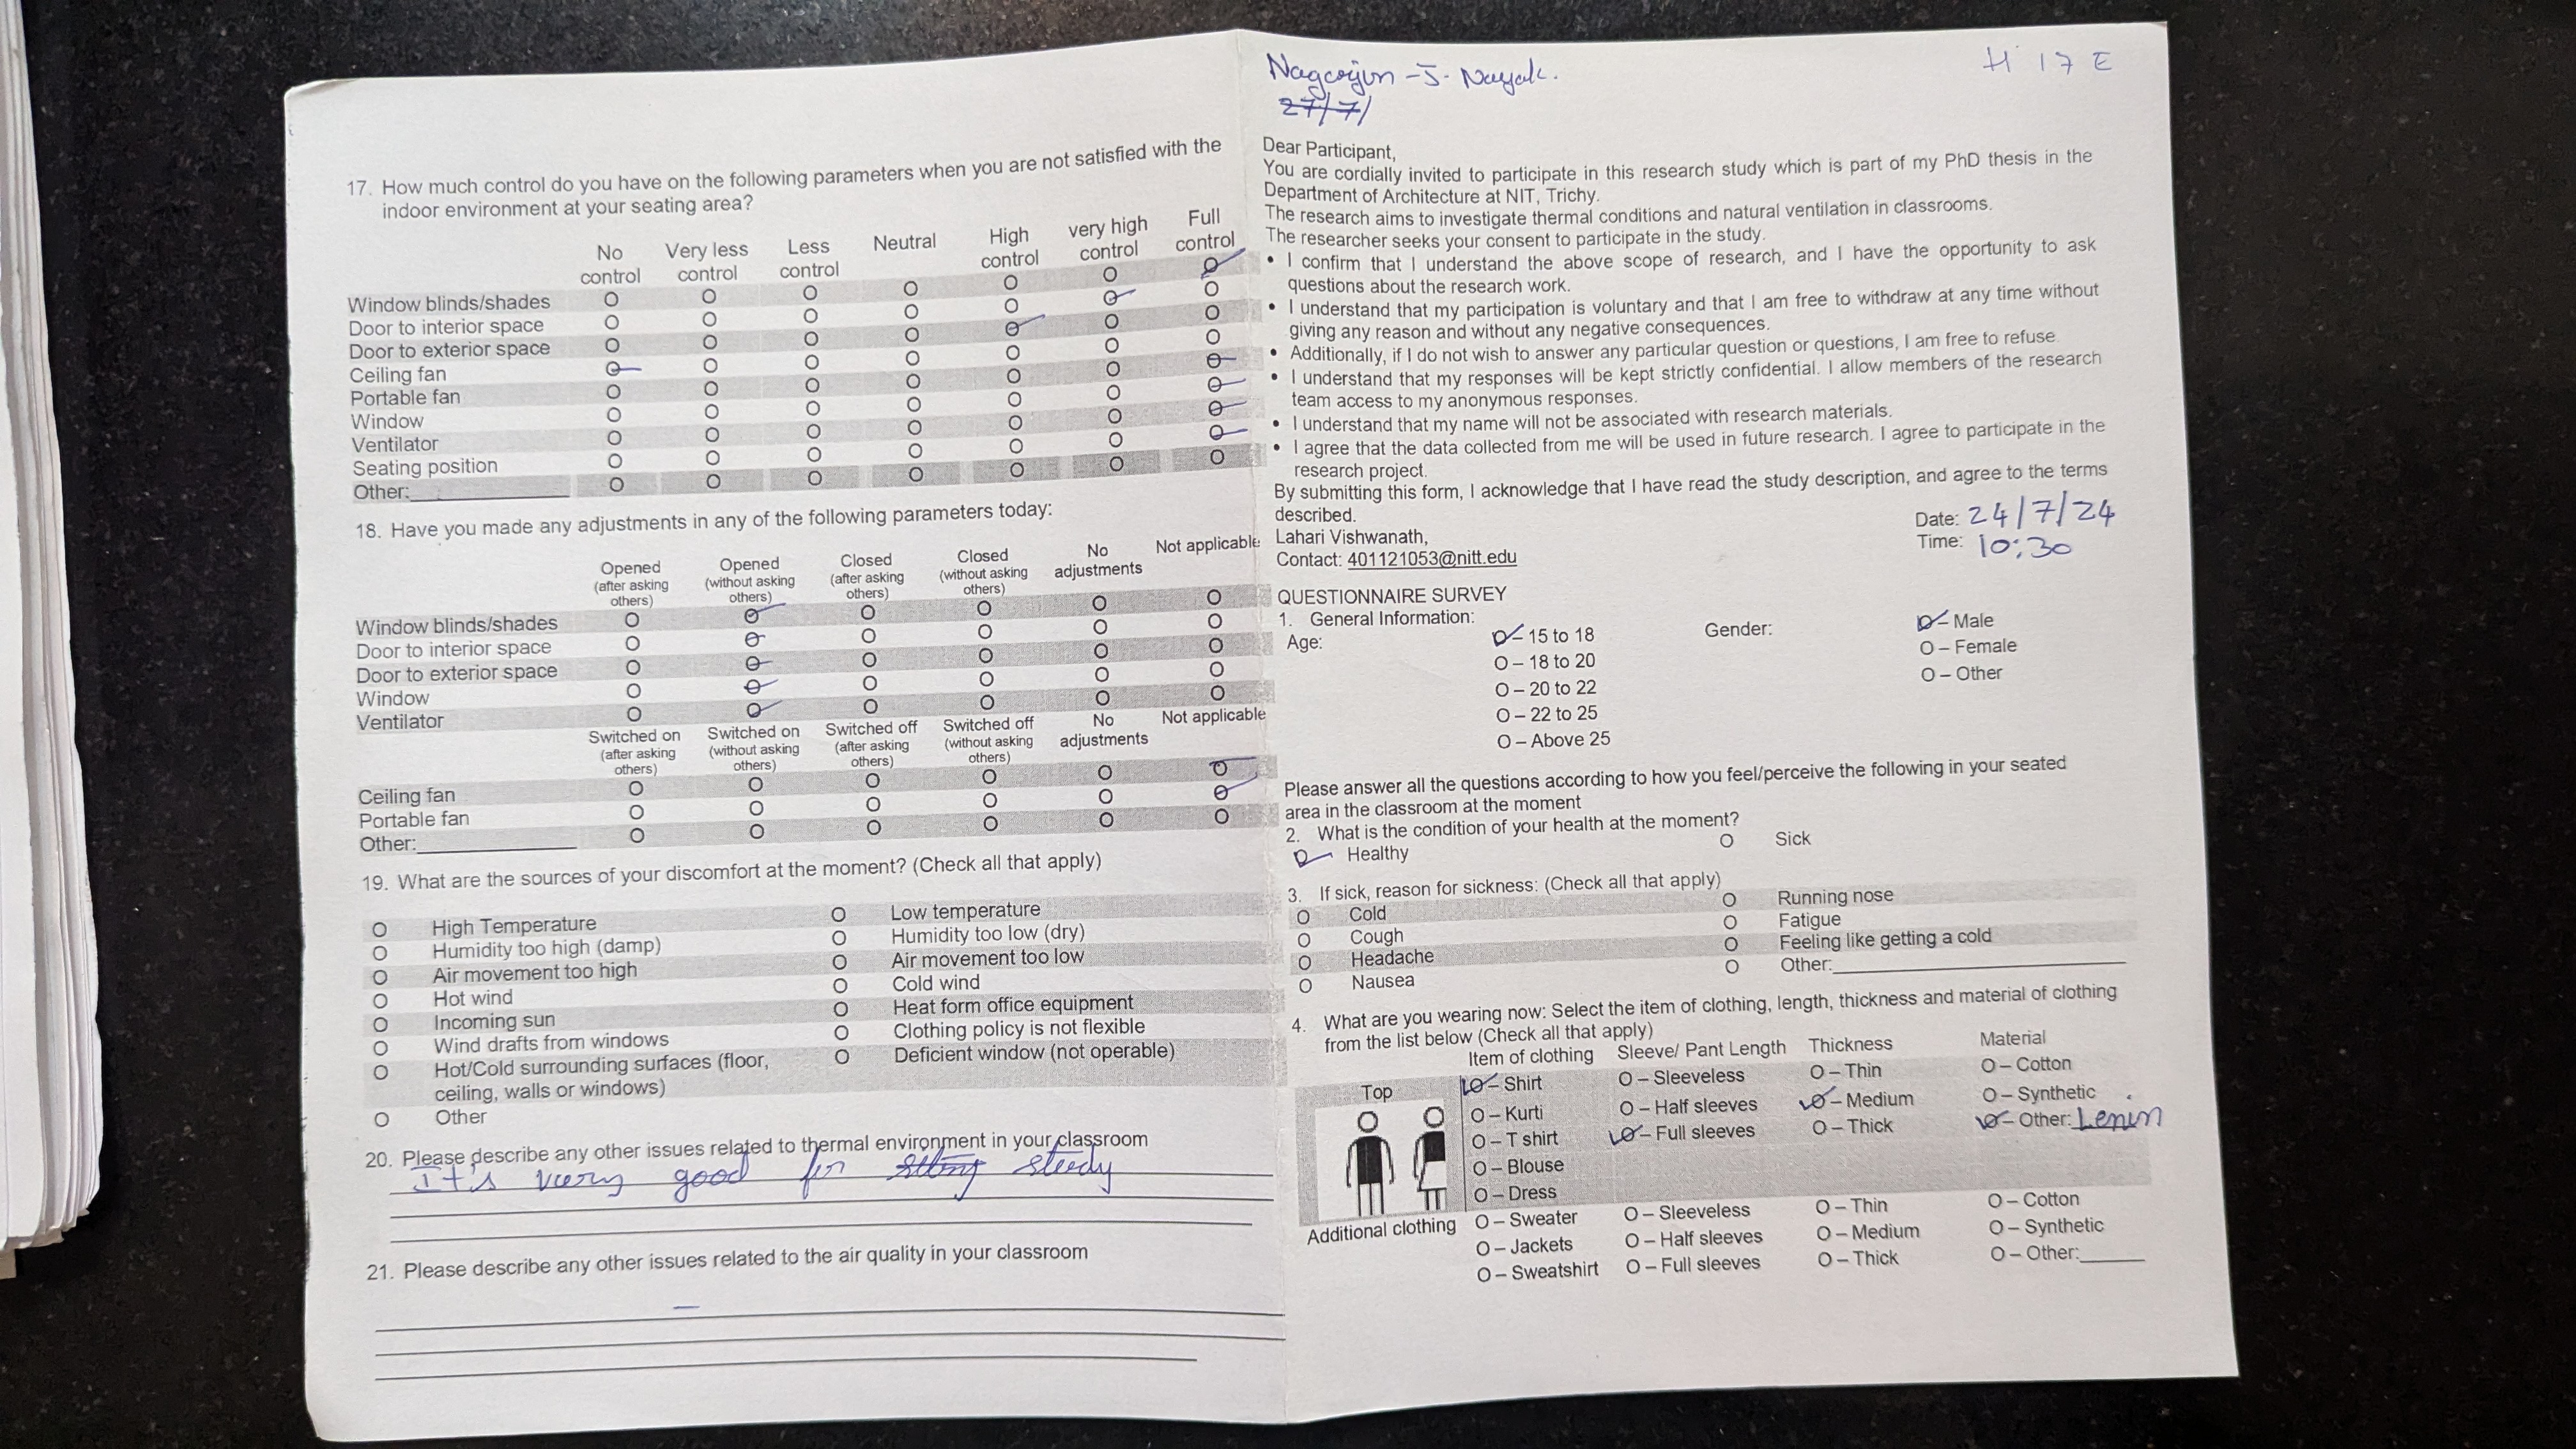 17. How much control do you have on the following parameters when you are not satisfied with the
indoor environment at your seating area?
No control Very less control Less control Neutral High control very high control Full control
Window blinds/shades
Door to interior space
Door to exterior space
Ceiling fan
Portable fan
Window
Ventilator
Seating position
Other:
18. Have you made any adjustments in any of the following parameters today:
Opened (after asking others) Opened (without asking others) Closed (after asking others) Closed (without asking others) No adjustments Not applicable
Window blinds/shades
Door to interior space
Door to exterior space
Window
Ventilator
Switched on (after asking others) Switched on (without asking others) Switched off (after asking others) Switched off (without asking others) No adjustments Not applicable
Ceiling fan
Portable fan
Other:
19. What are the sources of your discomfort at the moment? (Check all that apply)
O High Temperature O Low temperature
O Humidity too high (damp) O Humidity too low (dry)
O Air movement too high O Air movement too low
O Hot wind O Cold wind
O Incoming sun O Heat form office equipment
O Wind drafts from windows O Clothing policy is not flexible
O Hot/Cold surrounding surfaces (floor, O Deficient window (not operable)
ceiling, walls or windows)
O Other
20. Please describe any other issues related to thermal environment in your classroom
It's very good for study
21. Please describe any other issues related to the air quality in your classroom
–
Nagarjun -J- Nayak. H 17 E
27/7/
Dear Participant,
You are cordially invited to participate in this research study which is part of my PhD thesis in the
Department of Architecture at NIT, Trichy.
The research aims to investigate thermal conditions and natural ventilation in classrooms.
The researcher seeks your consent to participate in the study.
• I confirm that I understand the above scope of research, and I have the opportunity to ask
questions about the research work.
• I understand that my participation is voluntary and that I am free to withdraw at any time without
giving any reason and without any negative consequences.
• Additionally, if I do not wish to answer any particular question or questions, I am free to refuse
• I understand that my responses will be kept strictly confidential. I allow members of the research
team access to my anonymous responses.
• I understand that my name will not be associated with research materials.
• I agree that the data collected from me will be used in future research. I agree to participate in the
research project.
By submitting this form, I acknowledge that I have read the study description, and agree to the terms
described.
Lahari Vishwanath,
Contact: 401121053@nitt.edu
Date: 24/7/24
Time: 10:30
QUESTIONNAIRE SURVEY
1. General Information:
Age: O – 15 to 18 Gender: O – Male
O – 18 to 20 O – Female
O – 20 to 22 O – Other
O – 22 to 25
O – Above 25
Please answer all the questions according to how you feel/perceive the following in your seated
area in the classroom at the moment
2. What is the condition of your health at the moment?
O Healthy O Sick
3. If sick, reason for sickness: (Check all that apply)
O Cold O Running nose
O Cough O Fatigue
O Headache O Feeling like getting a cold
O Nausea O Other:
4. What are you wearing now: Select the item of clothing, length, thickness and material of clothing
from the list below (Check all that apply)
Item of clothing Sleeve/ Pant Length Thickness Material
Top O – Shirt O – Sleeveless O – Thin O – Cotton
O – Kurti O – Half sleeves O – Medium O – Synthetic
O – T shirt O – Full sleeves O – Thick O – Other: Lenin
O – Blouse
O – Dress
Additional clothing O – Sweater O – Sleeveless O – Thin O – Cotton
O – Jackets O – Half sleeves O – Medium O – Synthetic
O – Sweatshirt O – Full sleeves O – Thick O – Other: